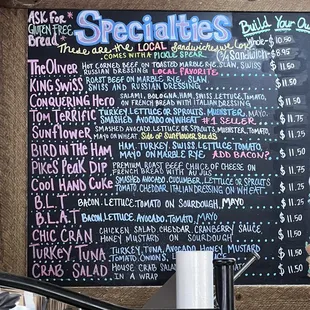 ASK FOR
GLUTEN FREE
Bread
Specialties
Build Your Ow
These are the LOCAL Sandwiches we
COMES WITH A PICKLE SPEAR
Whole - $10.95
½ Sandwich - $8.95
The Oliver HOT CORNED BEEF ON TOASTED MARBLE RYE, SLAW, SWISS $11.50
RUSSIAN DRESSING LOCAL FAVORITE
KING SWISS ROAST BEEF ON MARBLE RYE, SLAW $11.50
SWISS AND RUSSIAN DRESSING
Conquering Hero SALAMI, BOLOGNA, HAM, SWISS, LETTUCE, TOMATO, $11.50
ON FRENCH BREAD WITH ITALIAN DRESSING
Tom Terrific TURKEY, LETTUCE OR SPROUTS, MUENSTER, MAYO $11.75
SMASHED AVOCADO ON WHEAT #1 SELLER
Sunflower SMASHED AVOCADO, LETTUCE OR SPROUTS, MUENSTER, TOMATO $11.25
MAYO ON WHEAT Side of Sunflower Seeds
BIRD IN THE HAM HAM, TURKEY, SWISS, LETTUCE, TOMATO, $11.50
MAYO ON MARBLE RYE. ADD BACON?
PIKES PEAK DIP PREMIUM ROAST BEEF, CHOICE OF CHEESE ON $11.50
FRENCH BREAD WITH AU JUS
Cool Hand Cuke SMASHED AVOCADO, CUCUMBER, LETTUCE OR SPROUTS $11.25
TOMATO, CHEDDAR, ITALIAN DRESSING ON WHEAT
B.L.T BACON, LETTUCE, TOMATO ON SOURDOUGH, MAYO $11.25
B.L.A.T BACON, LETTUCE, AVOCADO, TOMATO, MAYO $11.50
CHIC CRAN CHICKEN SALAD, CHEDDAR, CRANBERRY SAUCE, $11.50
HONEY MUSTARD ON SOURDOUGH
TURKEY TUNA TURKEY, TUNA, AVOCADO, HONEY MUSTARD $11.50
TOMATO, ONION
CRAB SALAD HOUSE CRAB SA $11.50
IN A WRAP